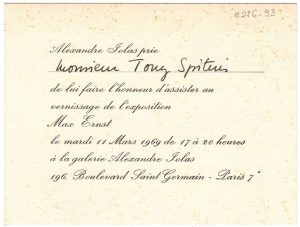 e216-93
Alexandre Iolas prie
Monsieur Tony Spiteris
de lui faire l'honneur d'assister au
vernissage de l'exposition
Max Ernst
le mardi 11 Mars 1969 de 17 à 20 heures
à la galerie Alexandre Iolas
196, Boulevard Saint Germain - Paris 7e